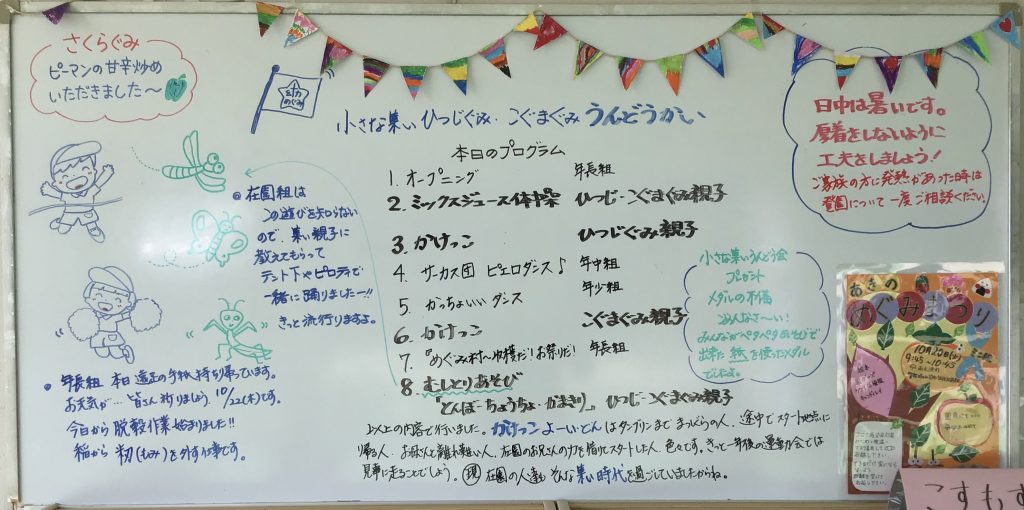 さくらぐみ
ピーマンの甘辛炒め
いただきました〜
めぐみ
小さな集い ひつじぐみ・こぐまぐみ うんどうかい
本日のプログラム
1. オープニング 年長組
2. ミックスジュース体操 ひつじ・こぐまぐみ親子
3. かけっこ ひつじぐみ親子
4 サーカス団 ピエロダンス♪ 年中組
5 かっちょいい ダンス 年少組
6 かけっこ こぐまぐみ親子
7 『めぐみ村〜収穫だ!お祭りだ! 年長組
8 むしとりあそび
『とんぼ・ちょうちょ・かまきり』 ひつじ・こぐまぐみ親子
以上の内容で行いました。かけっこよーいどんはダンプリンまで まっしぐらの人、途中でスタート地点に
帰る人、お母さんと離れ難い人、在園のお兄さんの力を借りてスタートした人、色々です。きっと一年後の運動会では
見事に走ることでしょう。現 在園の人達も そんな集い時代を過ごしていましたからね。
● 在園組は
この遊びを知らない
ので、集い親子に
教えてもらって
テント下やピロティで
一緒に踊りましたー!!
きっと流行りますよ。
● 年長組 本日 遠足の手紙 持ち帰っています。
お天気が… 皆さん 祈りましょう 10/22(木)です。
今日から 脱穀作業 始まりました!!
稲から 籾(もみ)を外す仕事です。
日中は暑いです。
厚着をしないように
工夫をしましょう!
ご家族の方に発熱があった時は
登園について一度ご相談ください。
小さな集いうんどう会
プレゼント
メダルの不備
ごめんなさ〜い!
みんながペタペタあそびで
出来た 紙を使ったメダル
でしたよ。
あきの
めぐみまつり
9:45〜10:45
こすもす